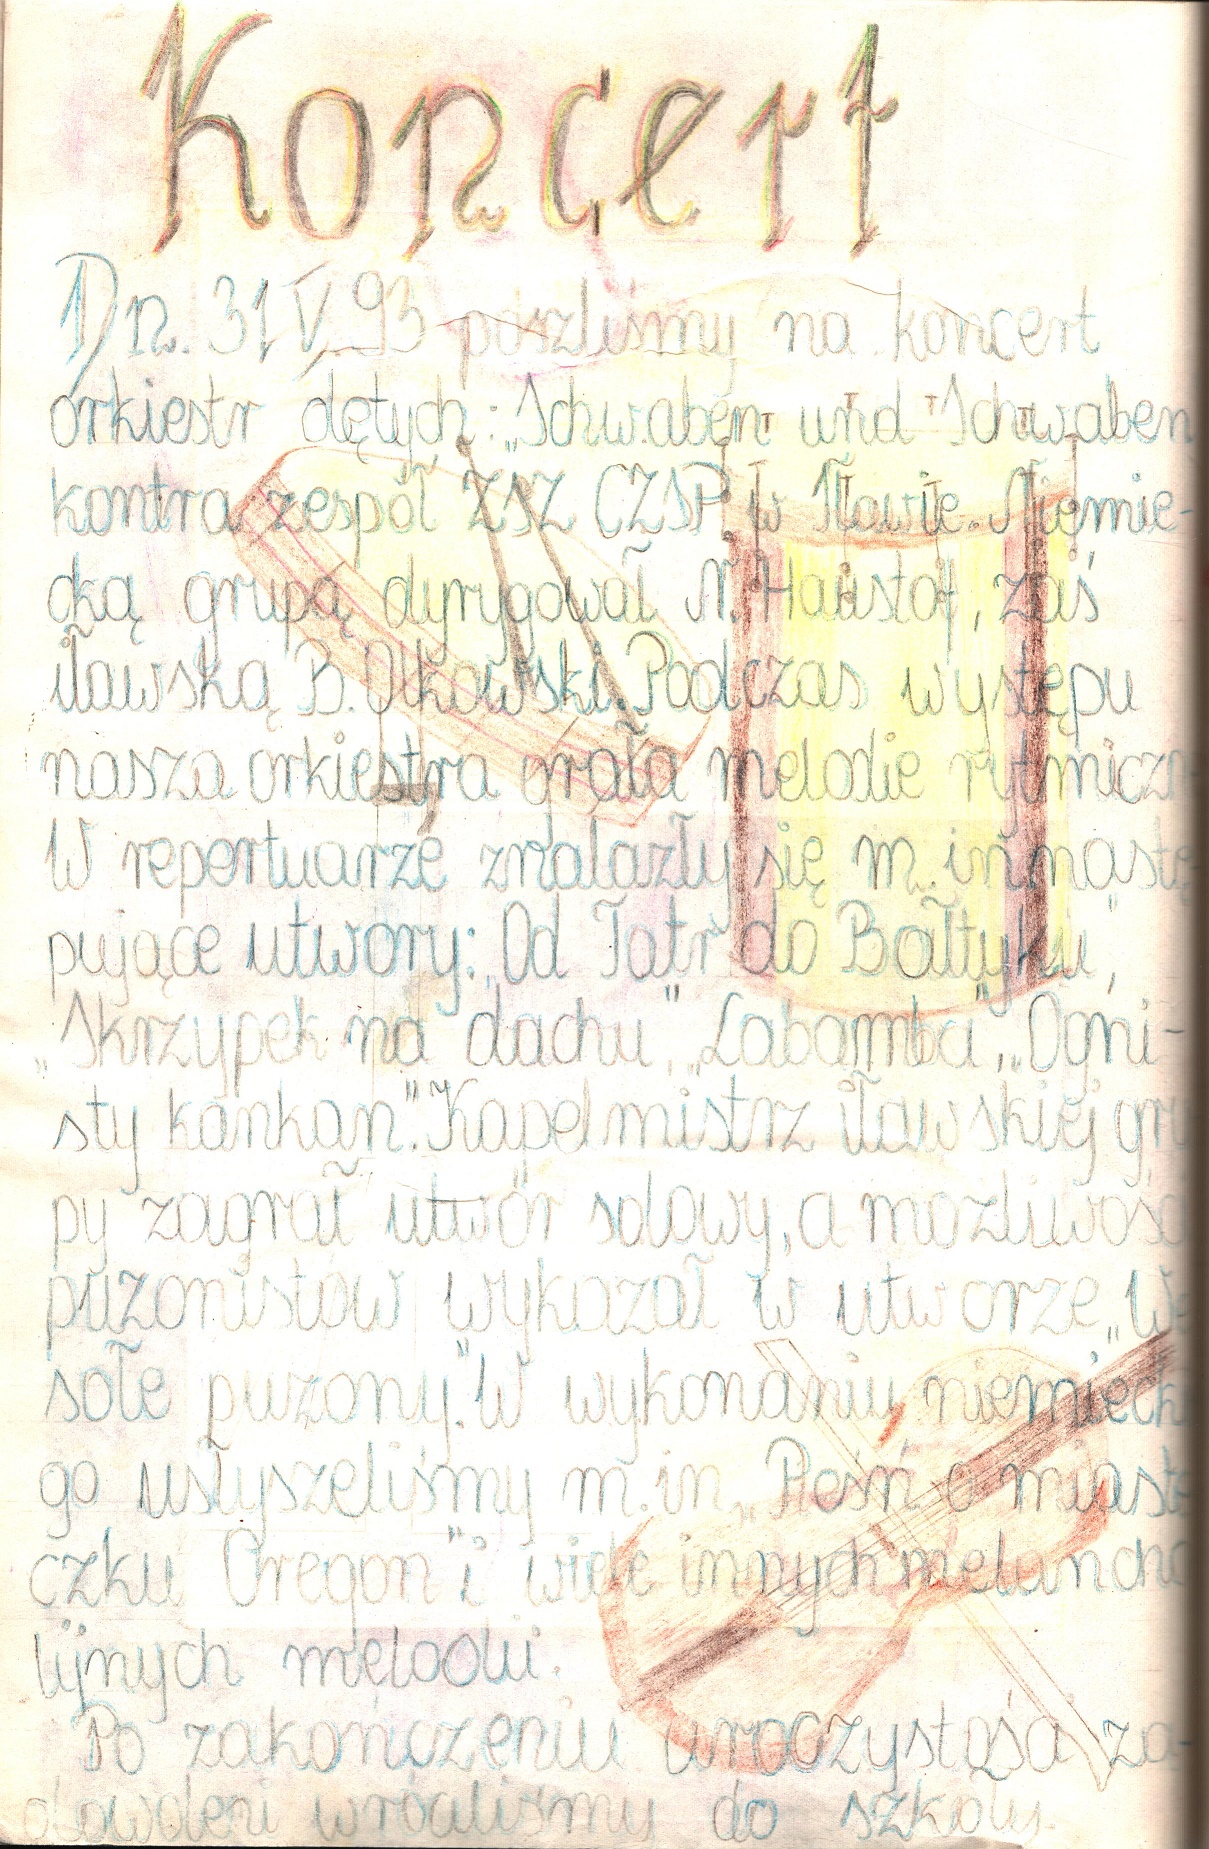 Koncert
Dn. 31 V 93 poszliśmy na koncert
orkiestr dętych: „Schwaben und Schwaben
kontra zespół ZSZ CZSP w Iławie. Niemie-
cką grupą dyrygował N. Haustof, zaś
iławską B. Olkowski. Podczas występu
nasza orkiestra grała melodie rytmiczn
W repertuarze znalazły się m. in. nastę
pujące utwory: „Od Tatr do Bałtyku",
„Skrzypek na dachu", „Labamba", „Ogni-
sty kankan". Kapelmistrz iławskiej gru
py zagrał utwór solowy, a możliwości
puzonistów wykazał w utworze „We
sołe puzony". W wykonaniu niemiecki
go usłyszeliśmy m. in. „Pieśń o miaste
czku Oregon" i wiele innych melancho
lijnych melodii.
Po zakończeniu uroczystości za-
dowoleni wróciliśmy do szkoły.